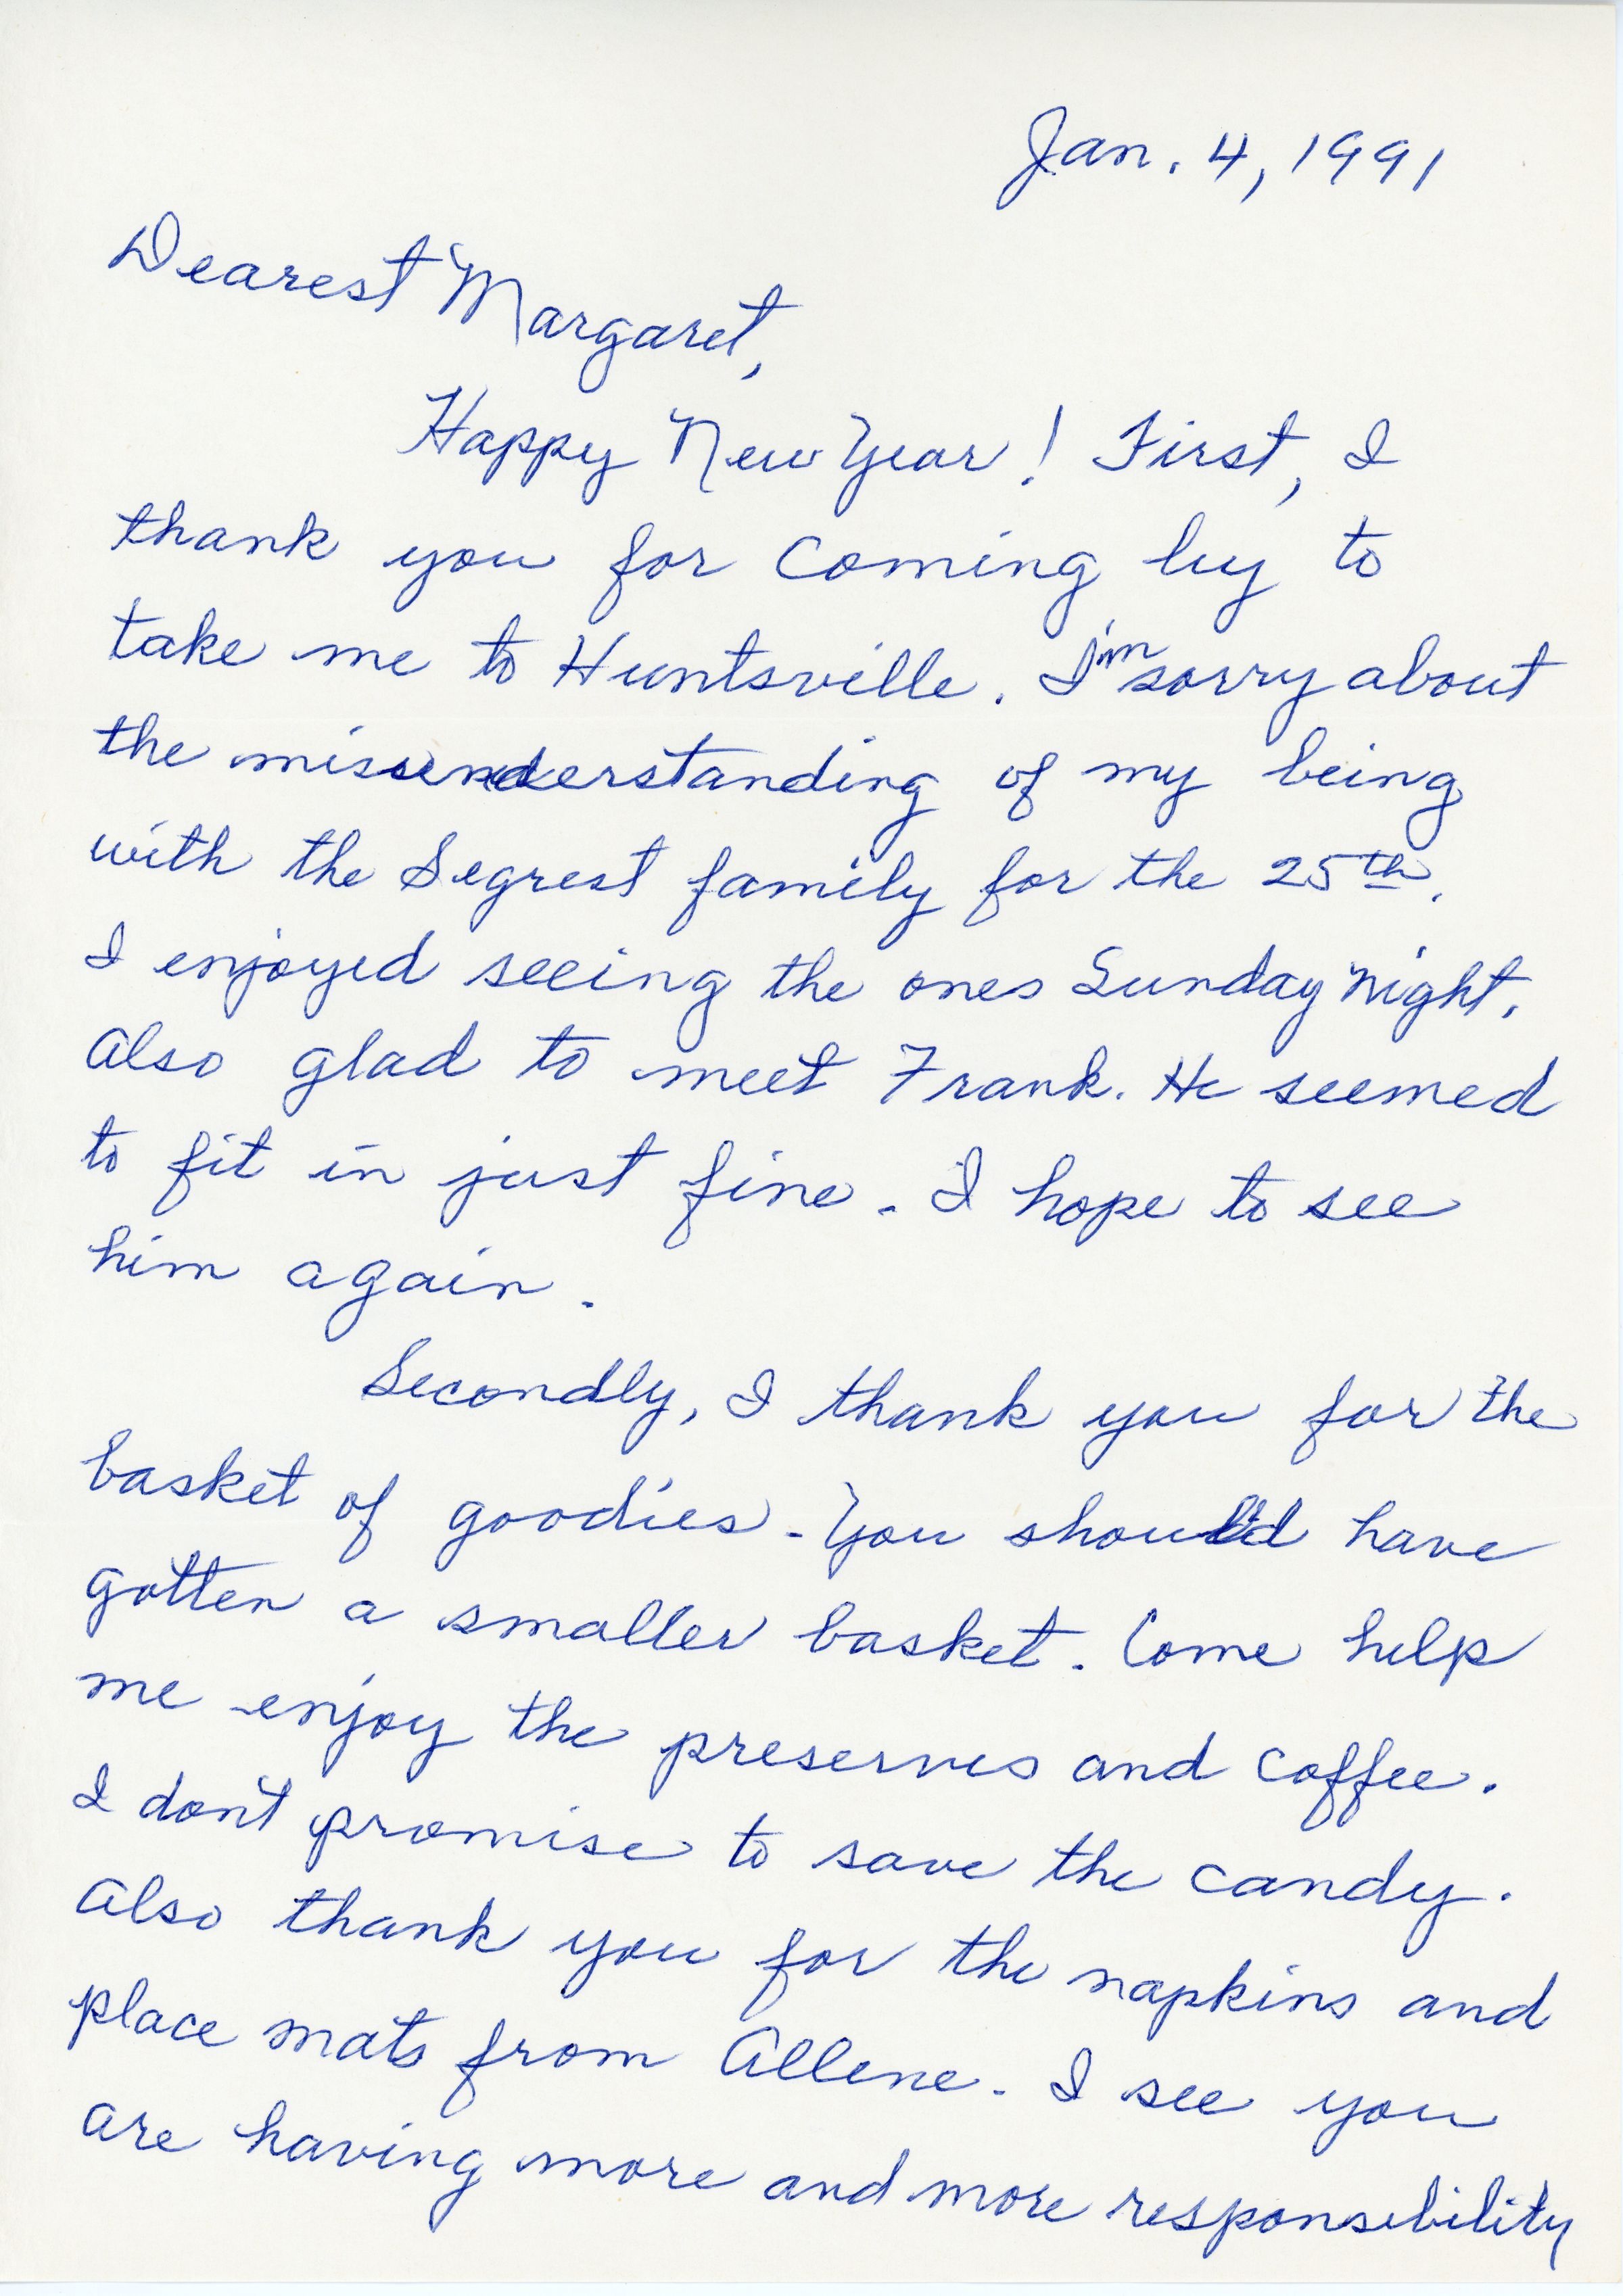 Jan. 4, 1991
Dearest Margaret,
Happy New Year! First, I
thank you for coming by to
take me to Huntsville. I'm sorry about
the misunderstanding of my being
with the Segrest family for the 25th.
I enjoyed seeing the ones Sunday night.
Also glad to meet Frank. He seemed
to fit in just fine. I hope to see
him again.
Secondly, I thank you for the
basket of goodies. You should have
gotten a smaller basket. Come help
me enjoy the preserves and coffee.
I don't promise to save the candy.
Also thank you for the napkins and
place mats from Allene. I see you
are having more and more responsibility